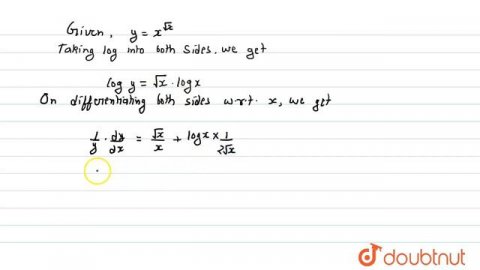 Given, y = x^√x
Taking log into both sides, we get
log y = √x · log x
On differentiating both sides w.r.t. x, we get
1/y · dy/dx = √x/x + log x × 1/2√x
doubtnut